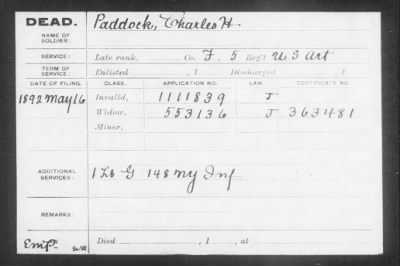 DEAD. Paddock, Charles H.
NAME OF SOLDIER:
SERVICE: Late rank, Co. F. 5 Reg't U S Art
TERM OF SERVICE: Enlisted , 1 Discharged , 1
DATE OF FILING. CLASS. APPLICATION NO. LAW CERTIFICATE NO.
1892 May 16 Invalid, 1111839 J
Widow, 553136 J 363481
Minor,
ADDITIONAL SERVICES: G 148 NY Inf
REMARKS:
Died , 1 , at